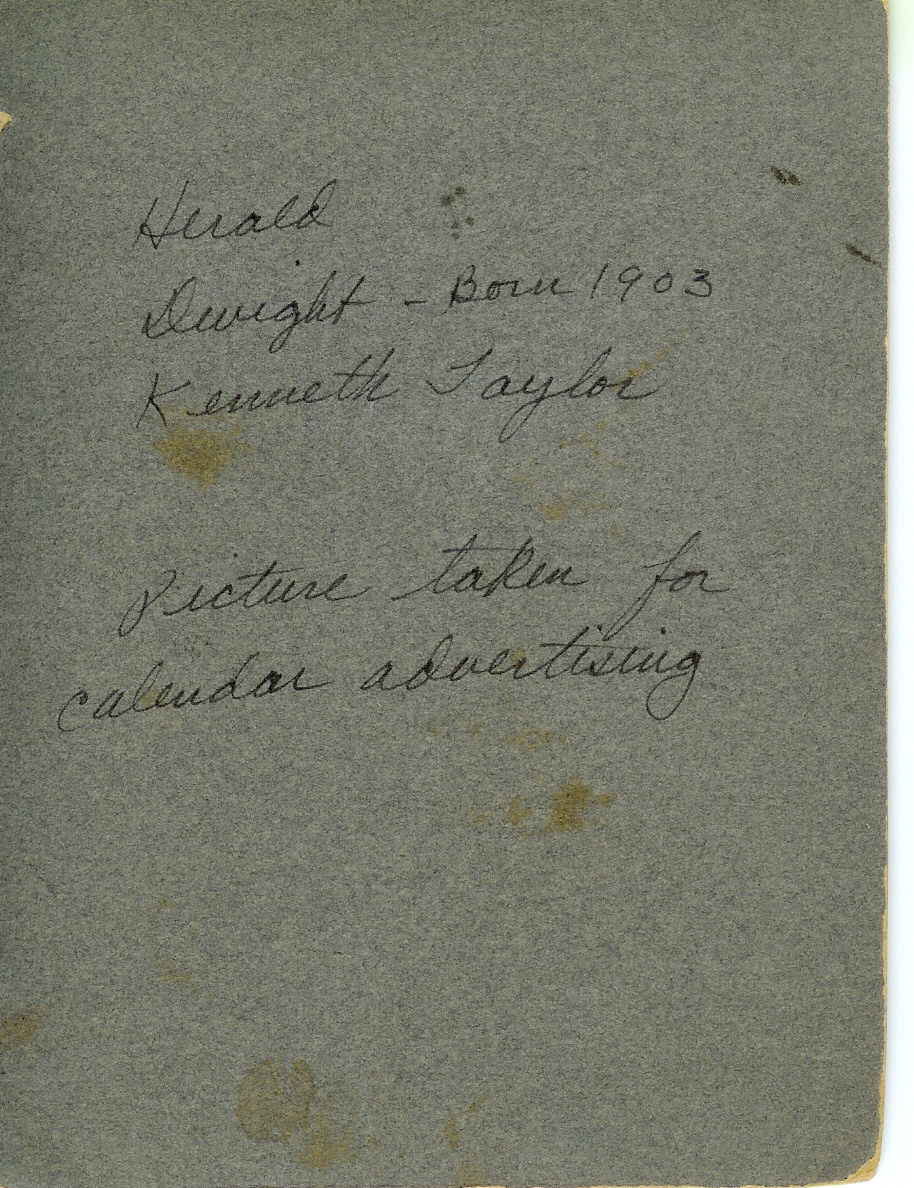 Herald
Dwight - Born 1903
Kenneth Taylor
Picture taken for
calendar advertising